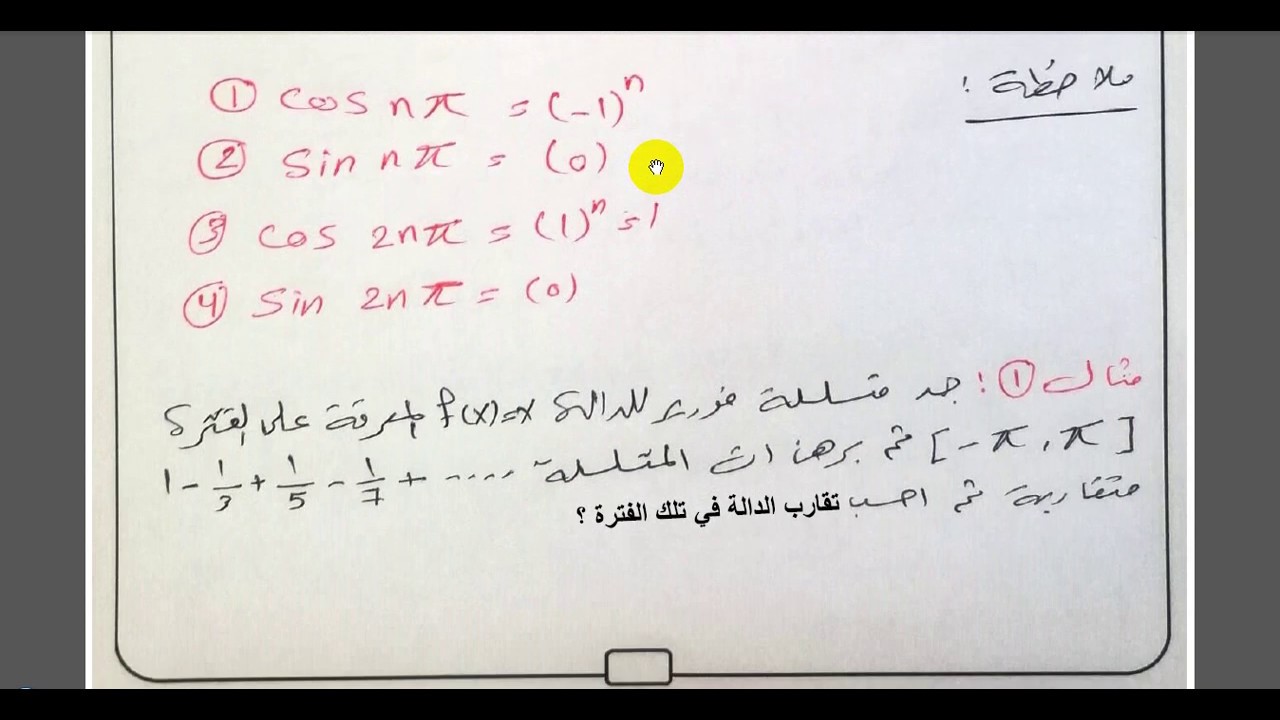 ملاحظة :
① cos nπ = (-1)ⁿ
② sin nπ = (0)
③ cos 2nπ = (1)ⁿ = 1
④ sin 2nπ = (0)
مثال ① : جد متسلسلة فورير للدالة f(x)=x المعرفة على الفترة
[-π, π] ثم برهن ان المتسلسلة 1 - 1/3 + 1/5 - 1/7 + .....
متقاربة ثم احسب تقارب الدالة في تلك الفترة ؟